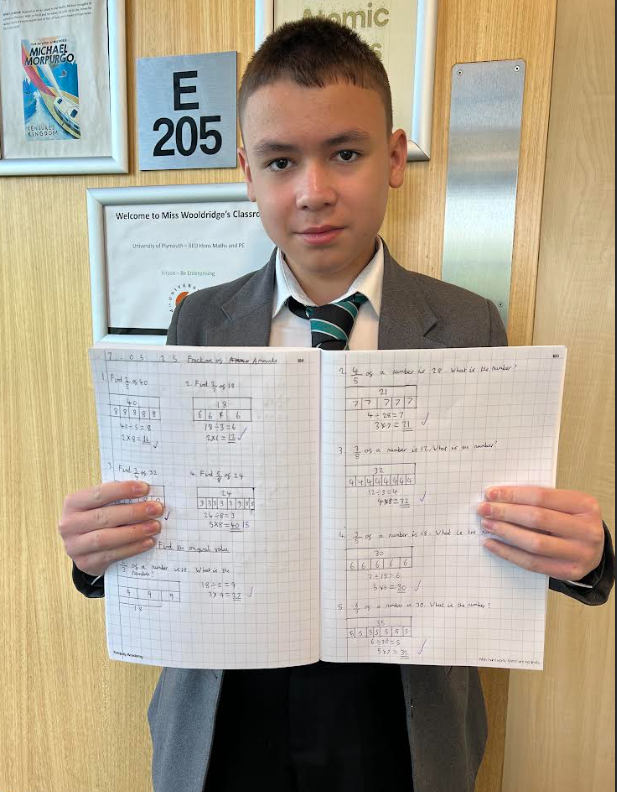 Atomic
MICHAEL
MORPURGO
KINGDOM
E
205
Welcome to Miss Wooldridge's Classro
University of Plymouth – BEd Hons Maths and PE
Vision – Be Enterprising
7 . 05 . 25 Fractions of Amounts
1. Find 2/5 of 40
40
8 8 8 8 8
40÷5=8
2×8=16
2. Find 2/3 of 18
18
6 6 6
18÷3=6
2×6=12
3. Find of 32
4. Find 5/8 of 24
24
3 3 3 3 3 3 3 3
24÷8=3
5×8=40 15
Find the original value
of a number is 18. What is the
number?
9 9 9
18
18÷2=9
3×9=27
2. 4/5 of a number is 28. What is the number?
21
7 7 7 7 7
4÷28=7
3×7=21
3. 3/8 of a number is 12. What is the number?
32
4 4 4 4 4 4 4 4
12÷3=4
4×8=32
4. of a number is 18. What is the
30
6 6 6 6 6
5×6=30
5. of a number is 30. What is the number?
35
5 5 5 5 5 5 5
6÷30=5
5×7=35